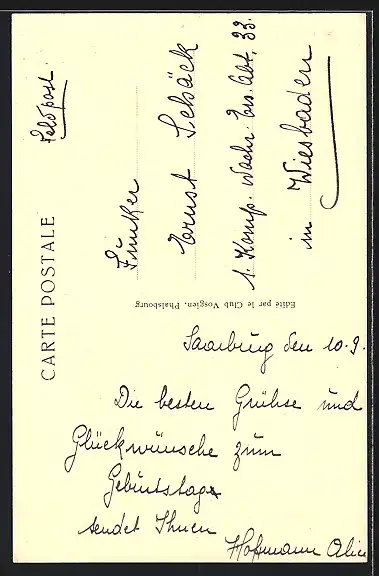 CARTE POSTALE
Feldpost.
Funker
Ernst Schäck
1. Komp. Nachr. Ers. Abt. 33.
in Wiesbaden
Edité par le Club Vosgien, Phalsbourg
Saarburg den 10.9.
Die besten Grühse und
Glückwünsche zum
Geburtstag
sendet Ihnen
Hoffmann Alice